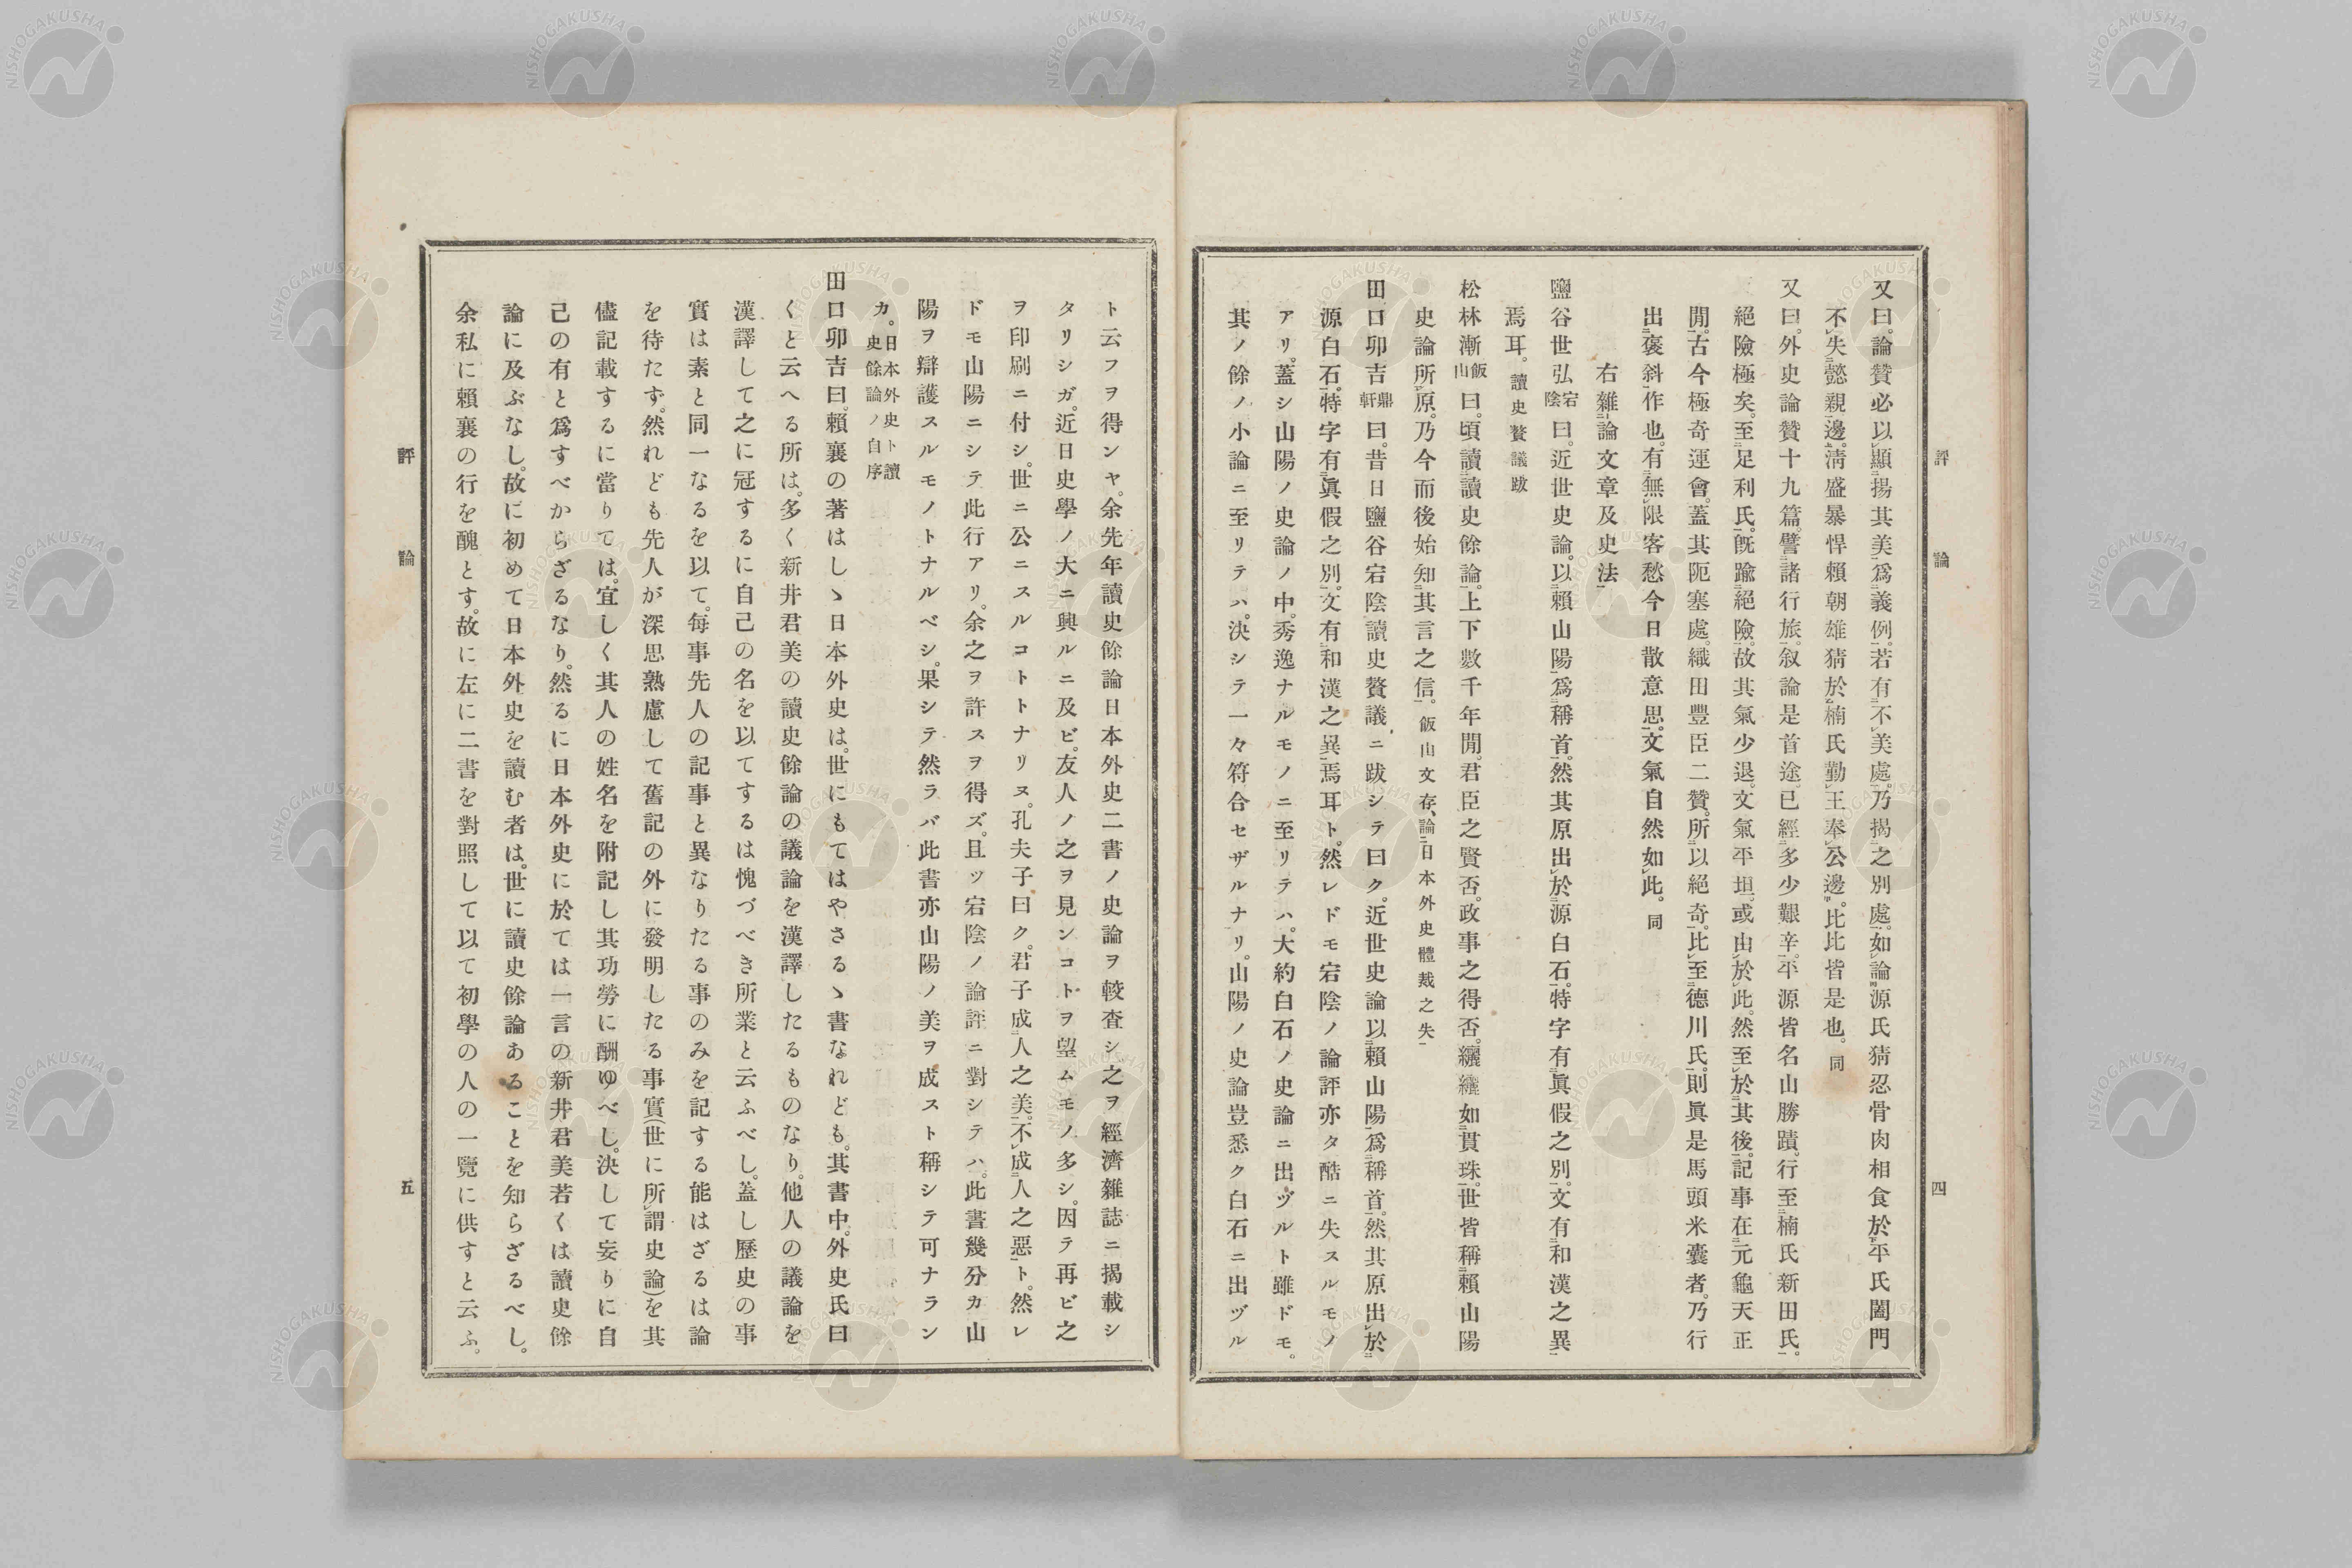 評論
四
又曰。論贊必以顯揚其美爲義例。若有不美處。乃揭之別處。如論源氏猜忍骨肉相食於平氏闔門
不失懿親邊。淸盛暴悍賴朝雄猜於楠氏勤王奉公邊。比比皆是也。同
又曰。外史論贊十九篇。譬諸行旅。叙論是首途。已經多少艱辛。平源皆名山勝蹟。行至楠氏新田氏。
絕險極矣。至足利氏。旣踰絕險。故其氣少退。文氣平坦。或由於此。然至於其後。記事在元龜天正
閒。古今極奇運會。蓋其阨塞處。織田豐臣二贊。所以絕奇。比至德川氏。則眞是馬頭米囊者。乃行
出褒斜作也。有無限客愁今日散意思。文氣自然如此。同
右雜論文章及史法
鹽谷世弘宕陰曰。近世史論。以賴山陽爲稱首。然其原出於源白石。特字有眞假之別。文有和漢之異
焉耳。讀史贅議跋
松林漸飯山曰。頃讀讀史餘論。上下數千年閒。君臣之賢否。政事之得否。纚纚如貫珠。世皆稱賴山陽
史論所原。乃今而後始知其言之信。飯山文存、論日本外史體裁之失
田口卯吉鼎軒曰。昔日鹽谷宕陰讀史贅議ニ跋シテ曰ク。近世史論以賴山陽爲稱首。然其原出於
源白石。特字有眞假之別。文有和漢之異焉耳ト。然レドモ宕陰ノ論評亦タ酷ニ失スルモノ
アリ。蓋シ山陽ノ史論ノ中。秀逸ナルモノニ至リテハ。大約白石ノ史論ニ出ヅルト雖ドモ。
其ノ餘ノ小論ニ至リテハ。決シテ一々符合セザルナリ。山陽ノ史論豈悉ク白石ニ出ヅル
ト云フヲ得ンヤ。余先年讀史餘論日本外史二書ノ史論ヲ較査シ之ヲ經濟雜誌ニ揭載シ
タリシガ。近日史學ノ大ニ興ルニ及ビ。友人ノ之ヲ見ンコトヲ望ムモノ多シ。因テ再ビ之
ヲ印刷ニ付シ。世ニ公ニスルコトトナリヌ。孔夫子曰ク。君子成人之美。不成人之惡ト。然レ
ドモ山陽ニシテ此行アリ。余之ヲ許スヲ得ズ。且ツ宕陰ノ論評ニ對シテハ。此書幾分カ山
陽ヲ辯護スルモノトナルベシ。果シテ然ラバ此書亦山陽ノ美ヲ成スト稱シテ可ナラン
カ。日本外史ト讀史餘論ノ自序
田口卯吉曰。賴襄の著はしゝ日本外史は。世にもてはやさるゝ書なれども。其書中。外史氏曰
くと云へる所は。多く新井君美の讀史餘論の議論を漢譯したるものなり。他人の議論を
漢譯して之に冠するに自己の名を以てするは愧づべき所業と云ふべし。蓋し歷史の事
實は素と同一なるを以て。每事先人の記事と異なりたる事のみを記する能はざるは論
を待たず。然れども先人が深思熟慮して舊記の外に發明したる事實(世に所謂史論)を其
儘記載するに當りては。宜しく其人の姓名を附記し其功勞に酬ゆべし。決して妄りに自
己の有と爲すべからざるなり。然るに日本外史に於ては一言の新井君美若くは讀史餘
論に及ぶなし。故に初めて日本外史を讀む者は。世に讀史餘論あることを知らざるべし。
余私に賴襄の行を醜とす。故に左に二書を對照して以て初學の人の一覽に供すと云ふ。
評論
五